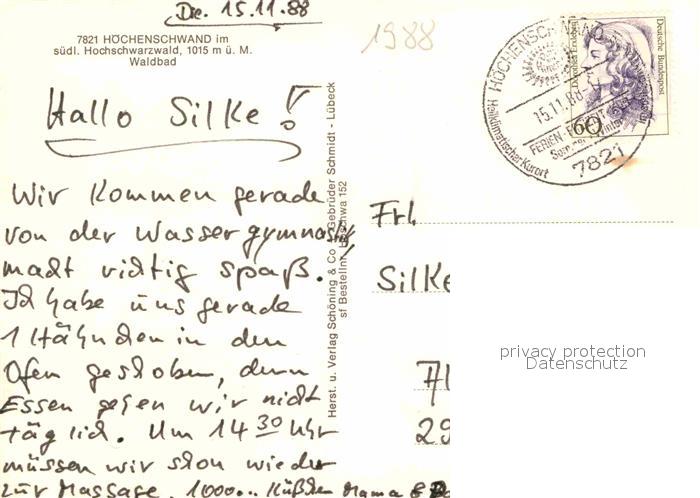 Die. 15.11.88
7821 HÖCHENSCHWAND im
südl. Hochschwarzwald, 1015 m ü. M.
Waldbad
Hallo Silke!
Wir kommen gerade
von der Wassergymnastik
macht richtig spaß.
Ich habe uns gerade
1 Hähnchen in den
Ofen geschoben, denn
Essen gehen wir nicht
täglich. Um 14 30 Uhr
müssen wir schon wieder
zur Massage. 1000... Küßchen Mama &
Herst. u. Verlag Schöning & Co + Gebrüder Schmidt - Lübeck
sf Bestellnr. Höchwa 152
1988
HÖCHENSCHWAND
15.11.88
FERIEN-
Heilklimatischer Kurort
7821
Deutsche Bundespost
60
Frl.
Silke
29
privacy protection
Datenschutz